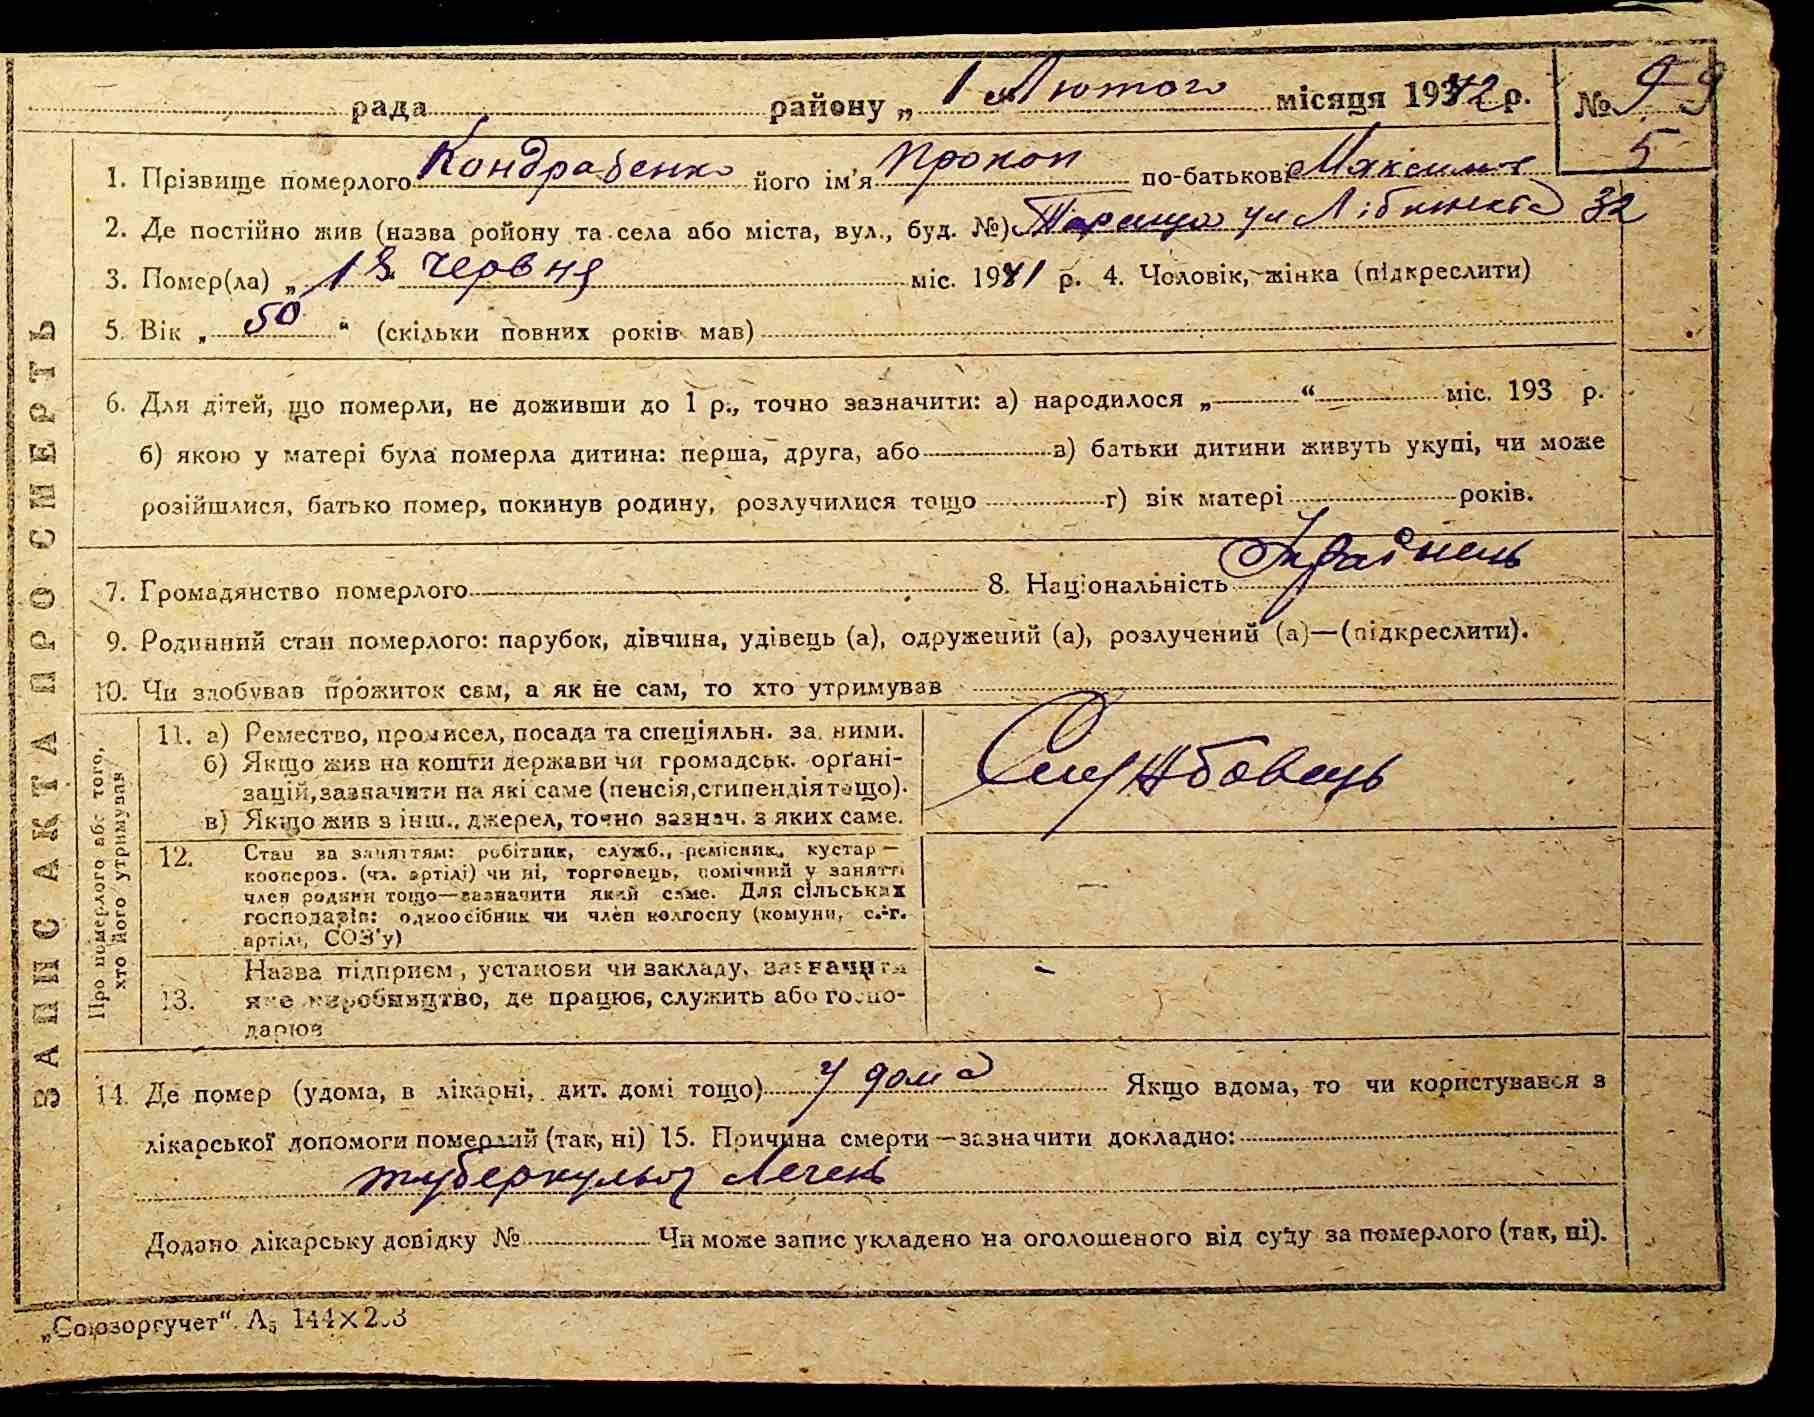 рада районy „ 1 " Лютого місяця 1942 р. № 99
5
1. Прізвище померлого Кондрабенко його ім'я Прокоп по-батькові Максимов
2. Де постійно жив (назва ройону та села або міста, вул., буд. №) Тараща ул Лібкнехта 32
3. Помер(ла) „ 18 " червня міс. 1941 р. 4. Чоловік, жінка (підкреслити)
5. Вік „ 50 “ (скільки повних років мав)
6. Для дітей, що померли, не доживши до 1 р., точно зазначити: а) народилося „ “ міс. 193 р.
б) якою у матері була померла дитина: перша, друга, або в) батьки дитини живуть укупі, чи може
розійшлися, батько помер, покинув родину, розлучилися тощо г) вік матері років.
7. Громадянство померлого 8. Національність Українець
9. Родинний стан померлого: парубок, дівчина, удівець (а), одружений (а), розлучений (а)—(підкреслити).
10. Чи здобував прожиток сам, а як не сам, то хто утримував
ЗАПИС АКТА ПРО СМЕРТЬ
Про померлого або того,
хто його утримував
11. а) Ремество, промисел, посада та спеціяльн. за ними.
б) Якщо жив на кошти держави чи громадськ. орґані-
зацій, зазначити на які саме (пенсія, стипендія тощо).
в) Якщо жив з інш., джерел, точно зазнач. з яких саме.
Службовець
12. Стан за заняттям: робітник, служб., ремісник, кустар —
коопероз. (чл. артілі) чи ні, торговець, помічний у занятті
член родини тощо—зазначити який саме. Для сільських
господарів: одноосібник чи член колгоспу (комуни, с.-г.
артілі, СОЗ'у)
—
13. Назва підприєм, установи чи закладу, зазначити
яке виробництво, де працює, служить або госпо-
дарює
-
14. Де помер (удома, в лікарні, дит. домі тощо) у дома Якщо вдома, то чи користувався з
лікарської допомоги померлий (так, ні) 15. Причина смерти—зазначити докладно:
туберкульоз легень
Додано лікарську довідку № Чи може запис укладено на оголошеного від суду за померлого (так, ні).
„Союзоргучет“. А₅ 144×203